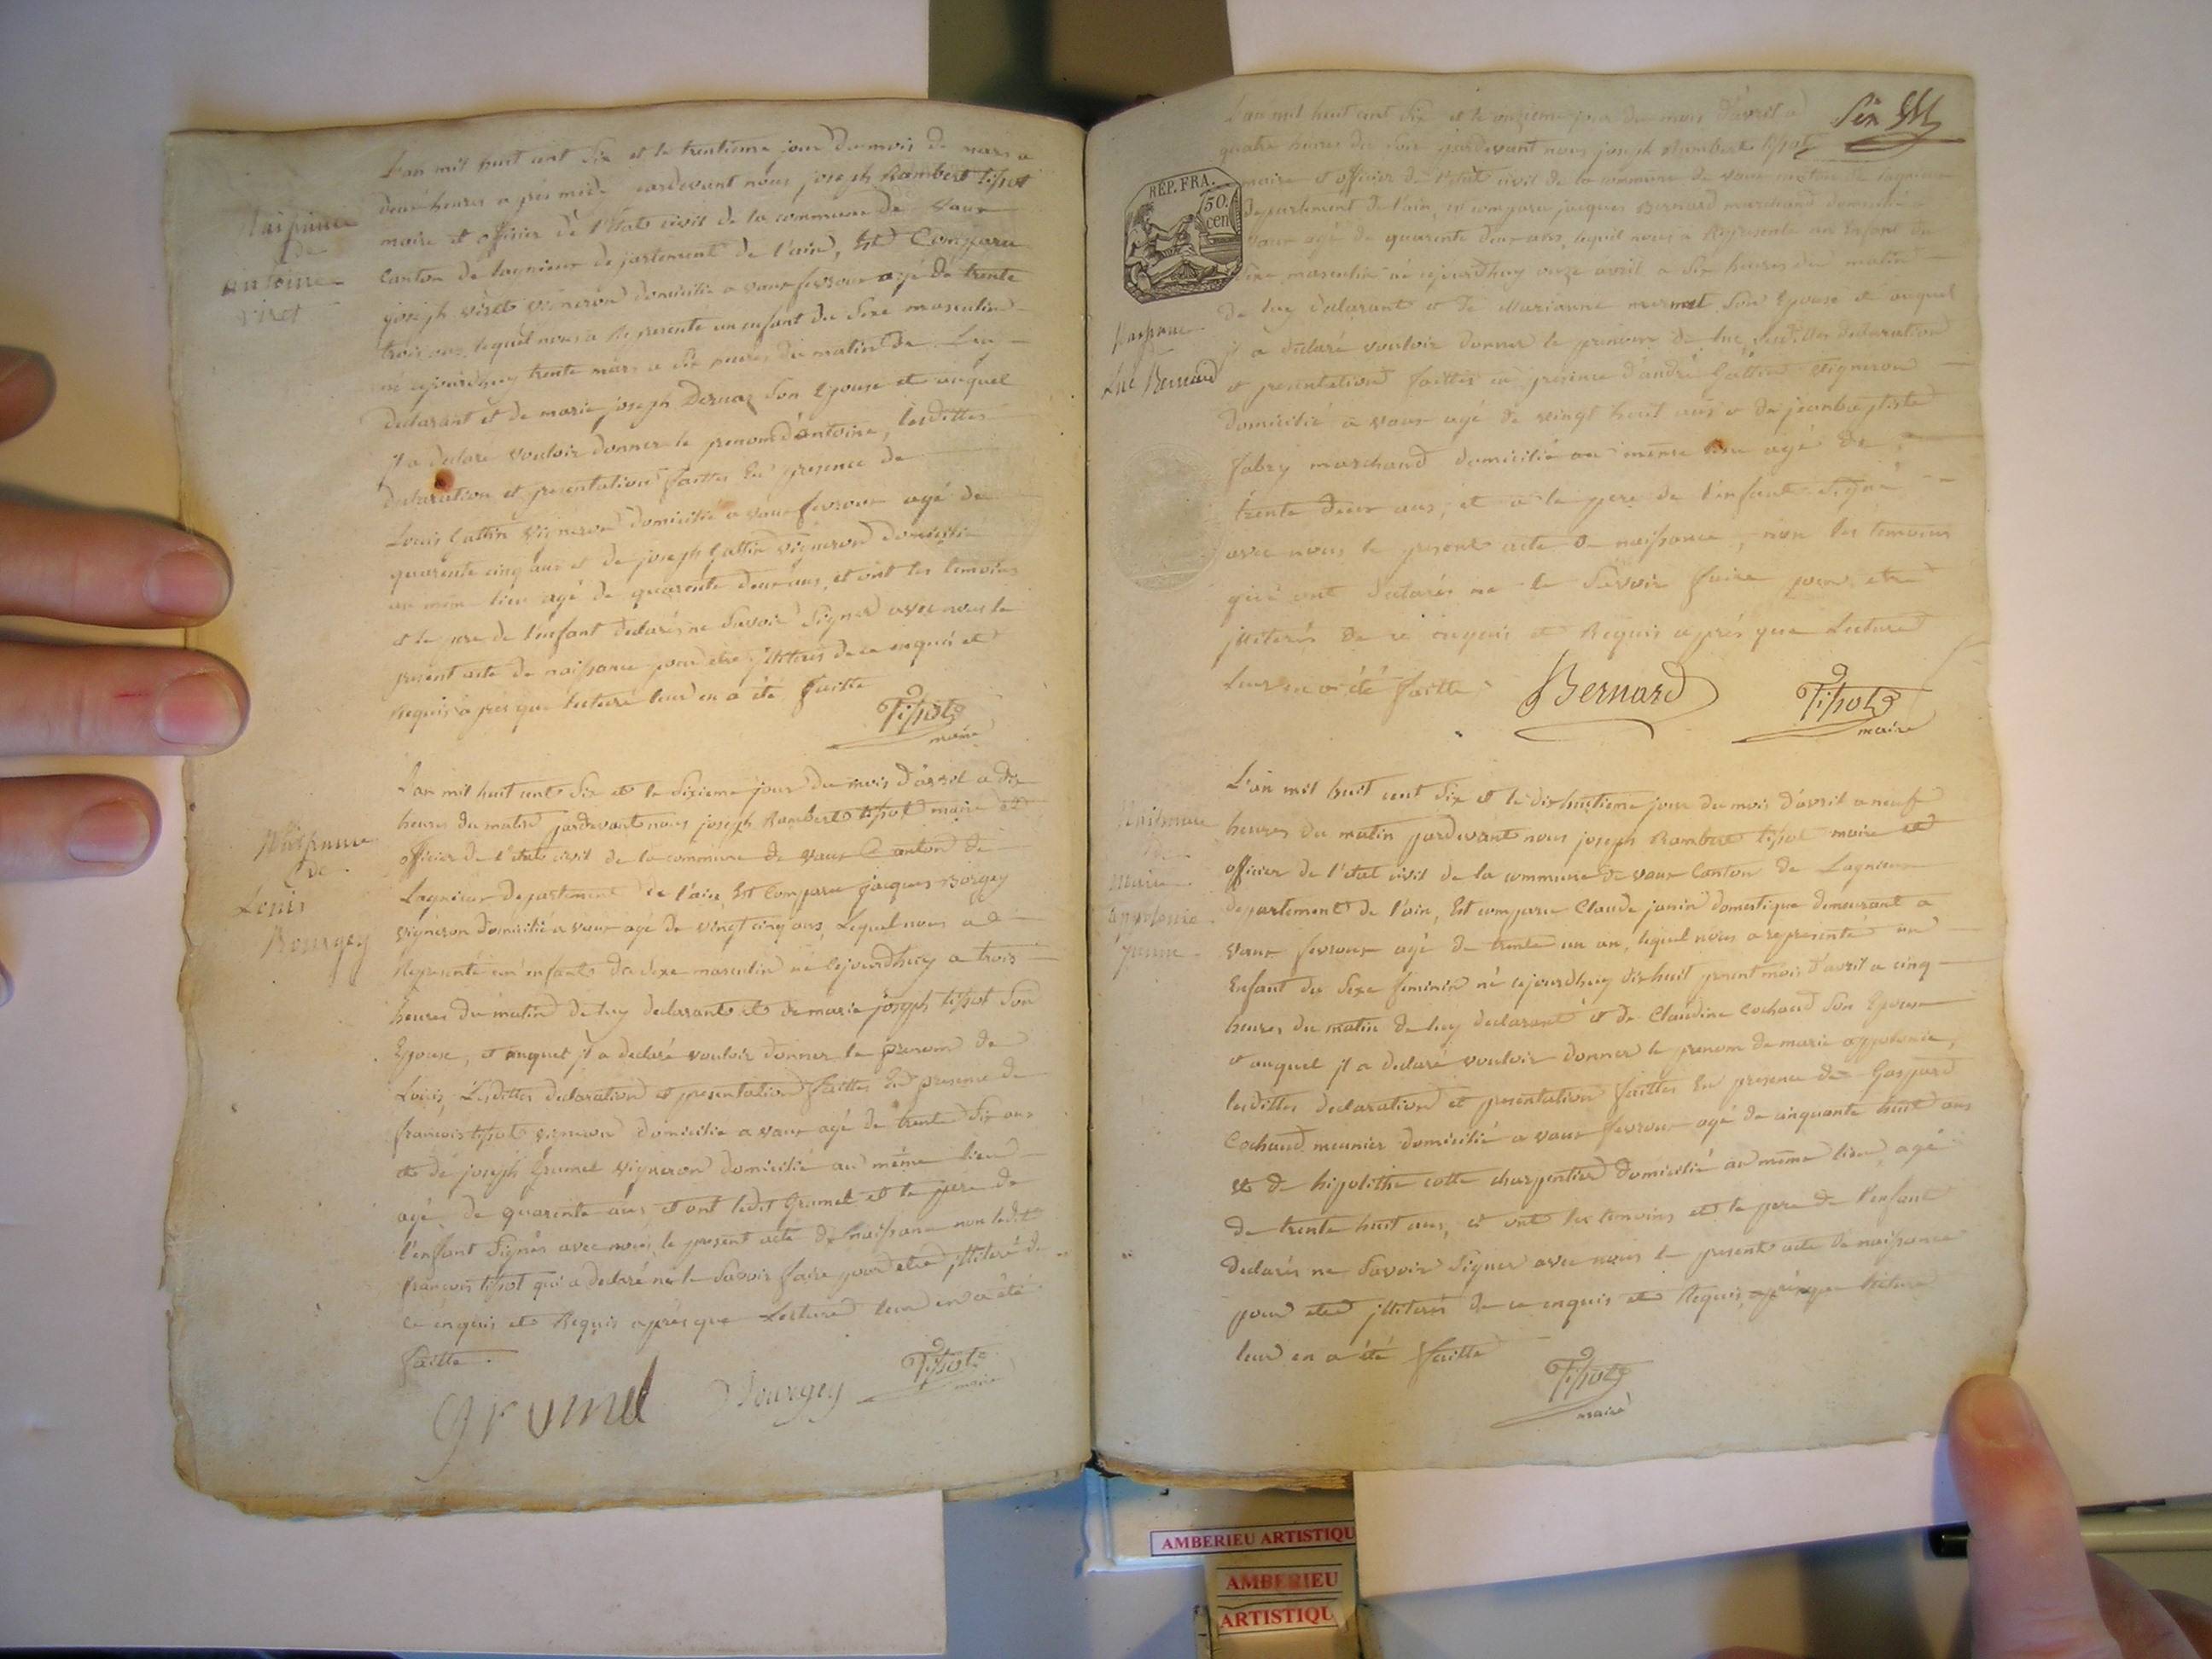 Naissance
de
antoine
viret
L'an mil huit cent six et le trentieme jour du mois de mars a
deux heures apres midi pardevant nous joseph Rambert tissot
maire et officier de l'état civil de la commune de vaux
canton de lagnieux departement de l'ain, Est Comparu
joseph viret vigneron domicilié a vaux fevroux agé de trente
trois ans, lequel nous a Representé un enfant du sexe masculin
né cejourdhuy trente mars a six heures du matin de Luy
Declarant et de marie joseph Deruaz son Epouse et auquel
jl a declaré vouloir donner le prenom d'antoine, lesdittes
declaration et presentation faittes En presence de
Louis Gattin vigneron domicilié a vaux fevroux agé de
quarente cinq ans et de joseph Gattin vigneron domicilié
au même lieu agé de quarente deux ans, et ont les temoins
et le pere de l'enfant declarés ne savoir signer avec nous le
present acte de naissance pour etre jlliterés de ce enquis et
Requis après que lecture leur en a été faitte
Tissot
maire
Naissance
de
Louis
Bourgey
L'an mil huit cent six et le sixieme jour du mois d'avril a dix
heures du matin pardevant nous joseph Rambert tissot maire et
officier de l'etat civil de la commune de vaux Canton de
Lagnieux departement de l'ain, Est Comparu jacques Borgey
vigneron domicilié a vaux agé de vingt cinq ans, Lequel nous a
Representé un enfant du sexe masculin né cejourdhuy a trois
heures du matin de luy declarant et de marie joseph tissot son
Epouse, et auquel jl a declaré vouloir donner le prenom de
Louis, Lesdittes declaration et presentation faittes En presence de
francois tissot vigneron domicilié a vaux agé de trente six ans
et de joseph Grumel vigneron domicilié au même lieu
agé de quarente ans et ont ledit Grumel et le pere de
l'enfant signés avec nous le present acte de naissance non ledit
francois tissot qui a declaré ne le savoir faire pour etre jlliteré de
ce enquis et Requis après que Lecture leur en a été
faitte.
grumel Bourgey Tissot
maire
L'an mil huit cent six et le onzieme jour du mois d'avril a
quatre heures du soir pardevant nous joseph Rambert tissot
maire et officier de l'etat civil de la commune de vaux canton de lagnieux
departement de l'ain, est comparu jacques Bernard marchand demeurant a
vaux agé de quarente deux ans, lequel nous a Representé un Enfant du
sexe masculin né cejourdhuy onze avril a six heures du matin
de luy declarant et de Marianne mermet son Epouse et auquel
jl a declaré vouloir donner le prenom de luc, lesdittes declaration
et presentation faittes en presence d'andré Gattin vigneron
domicilié a vaux agé de vingt huit ans et de jeanbaptiste
fabry marchand domicilié au même lieu agé de
trente deux ans, et a le pere de l'enfant signé
avec nous le present acte de naissance, non les temoins
qui ont declarés ne le savoir faire pour etre
jlliterés de ce enquis et Requis après que Lecture
leur en a été faitte
RÉP. FRA.
50.
cen
Naissance
Luc Bernard
Bernard Tissot
maire
Naissance
de
marie
appolonie
janin
L'an mil huit cent six et le dixhuitieme jour du mois d'avril a neuf
heures du matin pardevant nous joseph Rambert tissot maire et
officier de l'etat civil de la commune de vaux Canton de Lagnieux
departement de l'ain, Est comparu Claude janin domestique demeurant a
vaux fevroux agé de trente un an, lequel nous a representé un
Enfant du sexe feminin né cejourdhuy dix huit present mois d'avril a cinq
heures du matin de luy declarant et de Claudine Cochaud son Epouse
et auquel jl a declaré vouloir donner le prenom de marie appolonie,
lesdittes declaration et presentation faittes En presence de Gaspard
Cochaud meunier domicilié a vaux fevroux agé de cinquante huit ans
et de hipolithe cotte charpentier domicilié au même lieu, agé
de trente huit ans, et ont les temoins et le pere de l'enfant
declarés ne savoir signer avec nous le present acte de naissance
pour etre jlliterés de ce enquis et Requis, après que lecture
leur en a été faitte
Tissot
maire
AMBERIEU ARTISTIQU
AMBERIEU
ARTISTIQU